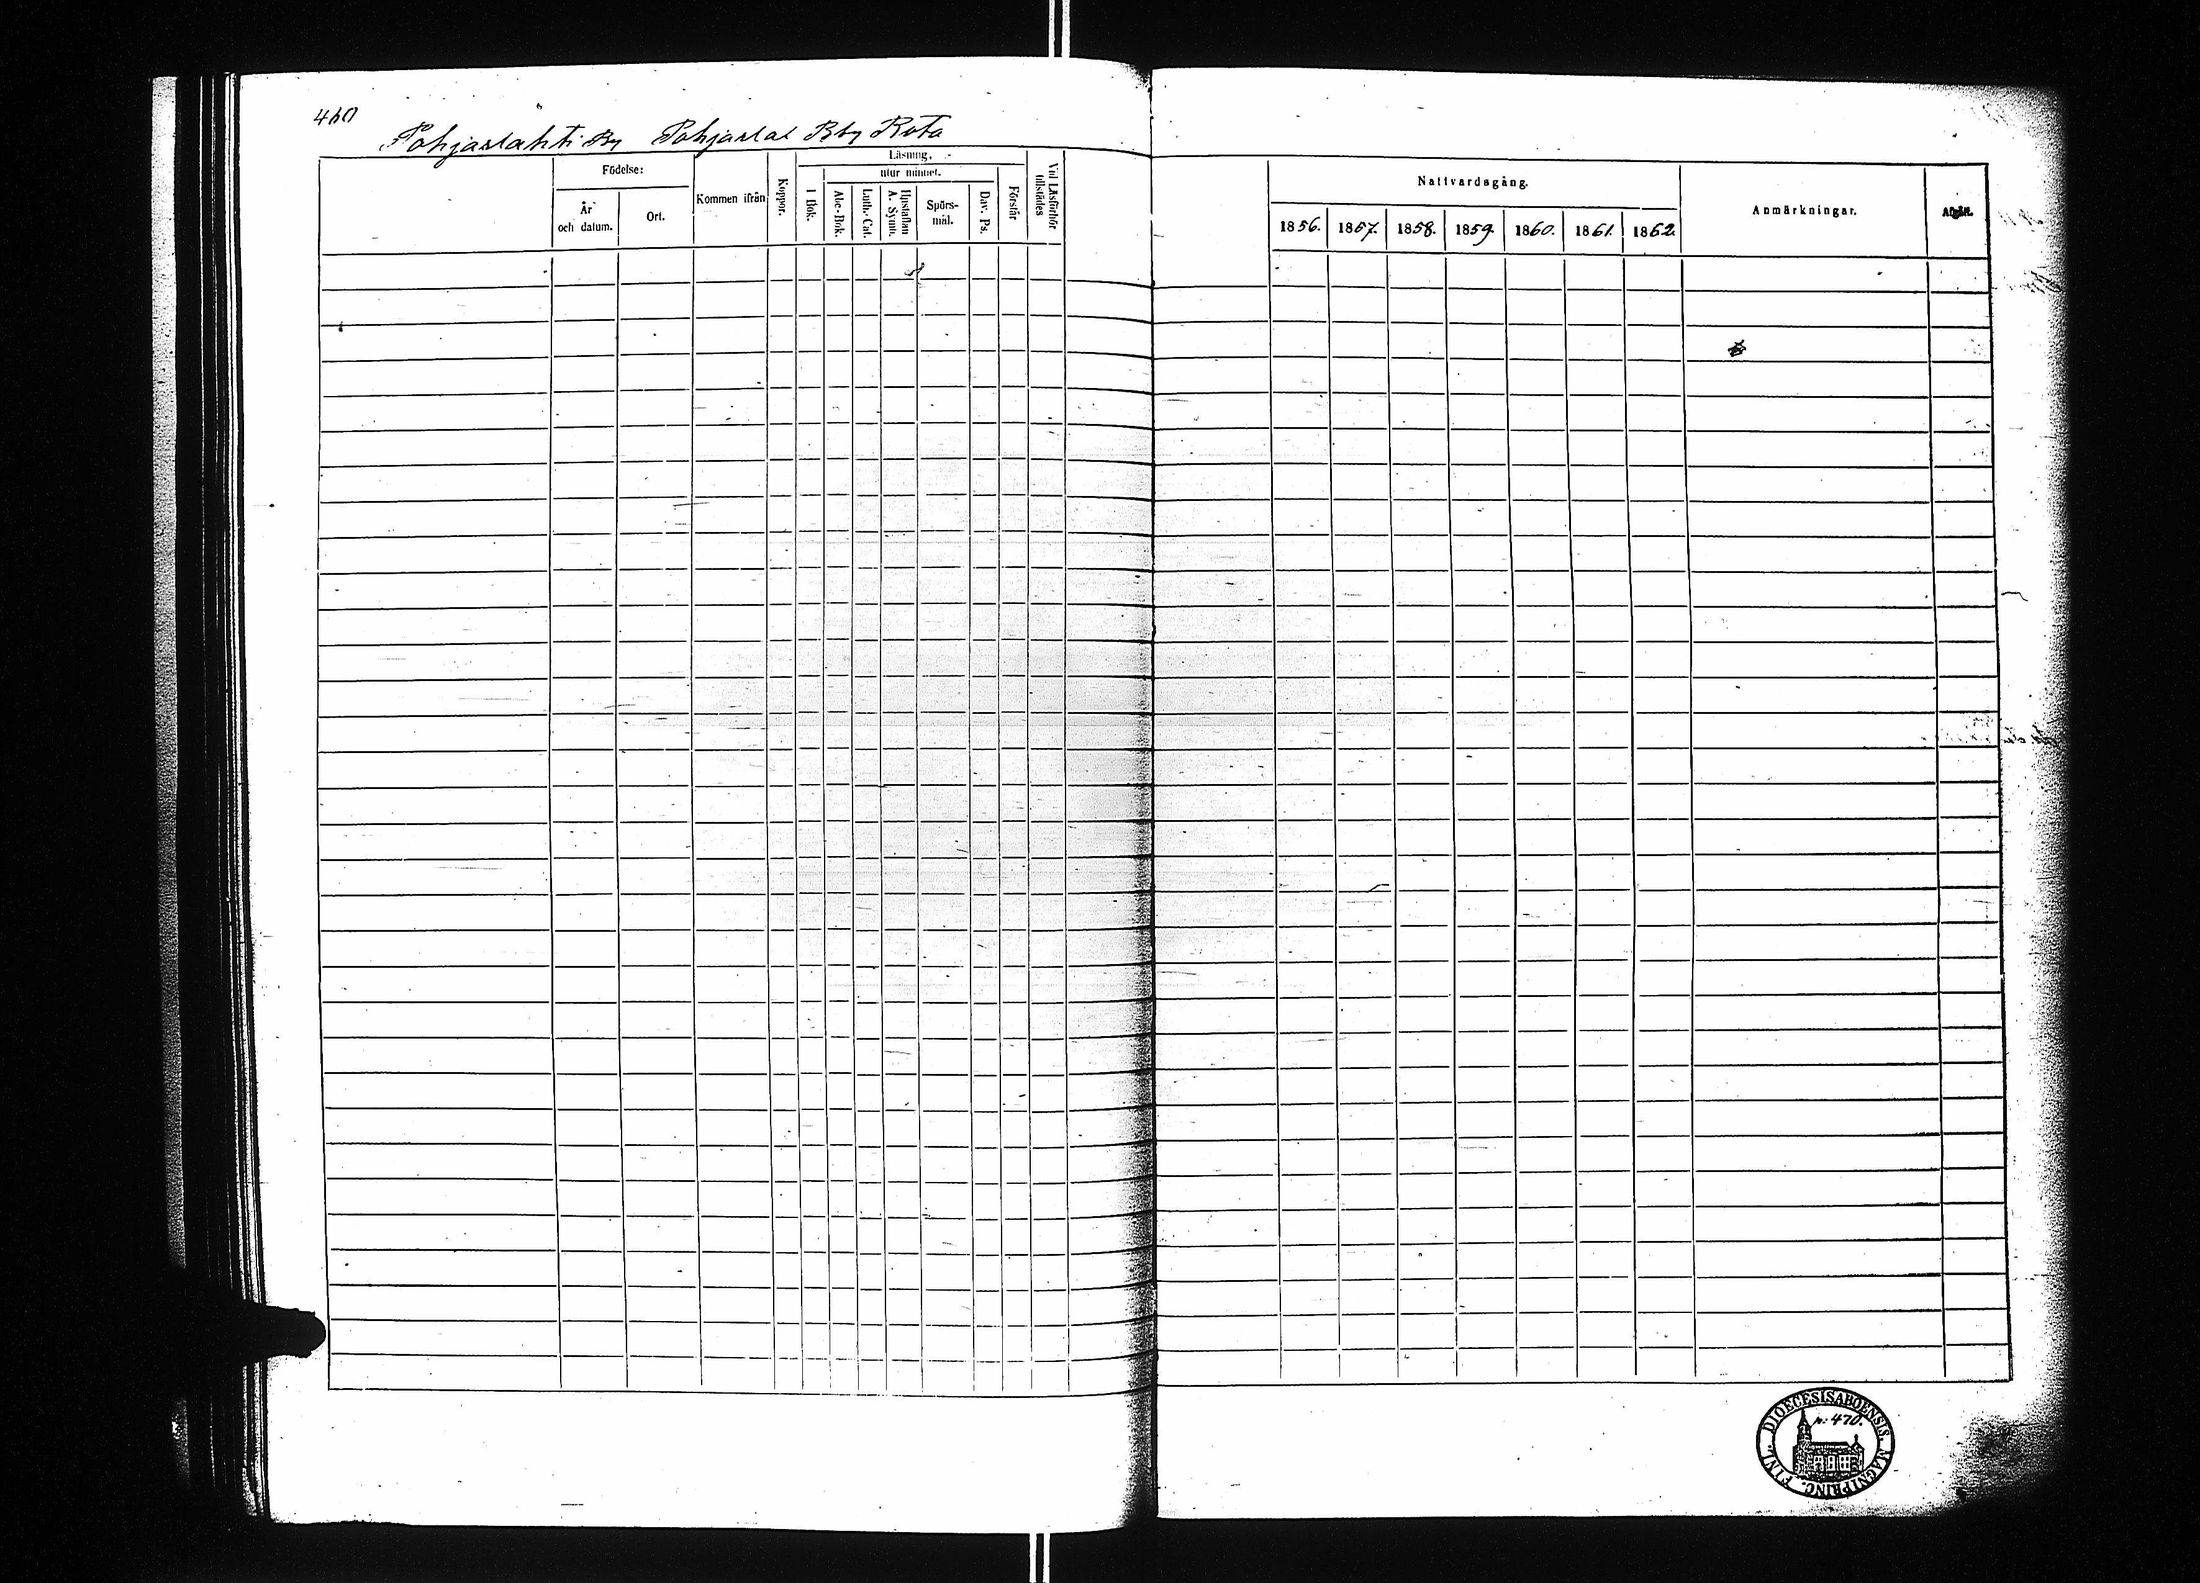 460
Pohjaslahti By Pohjaslat Bby Rota
Födelse:
År och datum.
Ort.
Kommen ifrån
Koppor.
Läsning,
utur minnet.
I Bok.
Abc-Bok.
Luth. Cat.
Hustaflan A. Symb.
Spörs-mål.
Dav. Ps.
Förstår
Vid Läsförhör tillstädes
Nattvardsgång.
1856. 1857. 1858. 1859. 1860. 1861. 1862.
Anmärkningar.
Afgått.
DIOECESIS ABOENSIS. MAGNI PRINC. FINL.
p. 470.